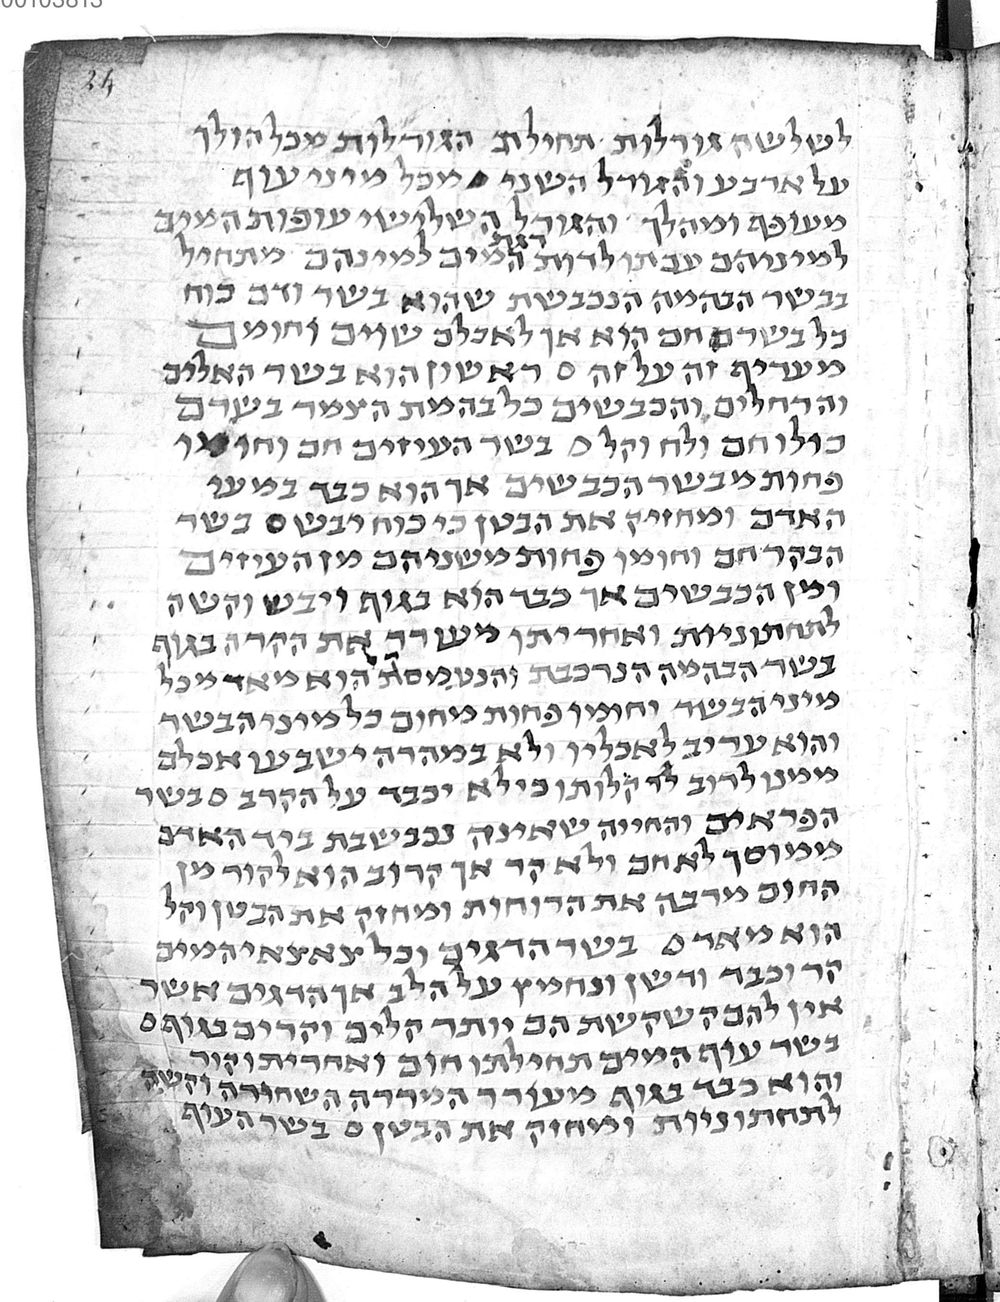 00103813
24
לשלשה גורלות תחילת הגורלות מכל הולך
על ארבע והגורל השני מכל מיני עוף
מעופף ומהלך והגורל השלישי עופות המים
למיניהם עם תולדות דגת המים למינהם מתחיל
בבשר הבהמה הנכבשת שהוא בשר ודם כוח
כל בשרם חם הוא אך לא כלם שוים וחומם
מעדיף זה על זה ס ראשון הוא בשר האלים
והרחלים והכבשים כל בהמת הצמר בשרם
כולו חם ולח וקל ס בשר העיזים חם וחומו
פחות מבשר הכבשים אך הוא כבד במעי
האדם ומחזיק את הבטן כי כוח יבש ס בשר
הבקר חם וחומו פחות משניהם מן העיזים
ומן הכבשים אך כבד הוא בגוף ויבש וקשה
לתחתוניות ואחריתו משרה את הקרה בגוף
בשר הבהמה הנרכבת והנטמסת הוא מאד מכל
מיני הבשר וחומו פחות מחום כל מיני הבשר
והוא עריב לאכליו ולא במהרה ישבעו אכלם
ממנו לרוב קלותו כי לא יכבד על הקרב ס בשר
הפראים והחייה שאינה נכבשבת ביד האדם
ממוסך לא חם ולא קר אך קרוב הוא לקור מן
החום מרבה את הרוחות ומחזק את הבטן וקל
הוא מאד ס בשר הדגים וכל צאצאי המים
קר וכבד ודשן ונחמץ על הלב אך הדגים אשר
אין להם קשקשת הם יותר קלים וקרים בגוף ס
בשר עוף המים תחילתו חום ואחריתו קור
והוא כבד בגוף מעורר המררה השחורה וקשה
לתחתוניות ומחזיק את הבטן ס בשר העוף